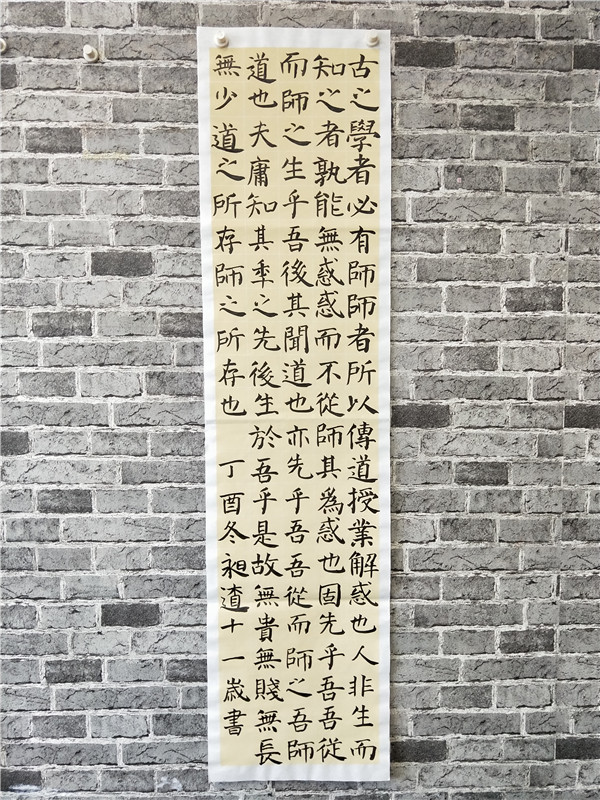 古之學者必有師師者所以傳道授業解惑也人非生而
知之者孰能無惑惑而不從師其爲惑也固先乎吾吾從
而師之生乎吾後其聞道也亦先乎吾吾從而師之吾師
道也夫庸知其秊之先後生於吾乎是故無貴無賤無長
無少道之所存師之所存也
丁酉冬昶十一歲書